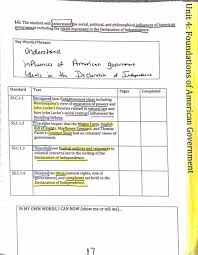 Unit 4: Foundations of American Government
LG: The student will understand the social, political and philosophical influences of American
government including the ideas expressed in the Declaration of Independence.
Key Words/Phrases
Understand
Influences of American government
Ideas in the Declaration of Independence
Standard Text Pages Completed
SS.C.1.1 Recognize how Enlightenment ideas including
Montesquieu's view of separation of powers and
John Locke's theories related to natural law and
how John Locke's social contract influenced the
founding fathers.
SS.C.1.2 Trace the impact that the Magna Carta, English
Bill of Rights, Mayflower Compact, and Thomas
Paine's Common Sense had on colonists' views of
government.
SS.C.1.3 how English policies and responses to
colonial concerns led to the writing of the
Declaration of Independence.
SS.C.1.4 the ideas (natural rights, role of
government) and complaints set forth in the
Declaration of Independence.
IN MY OWN WORDS, I CAN NOW (show me or tell me)...
17